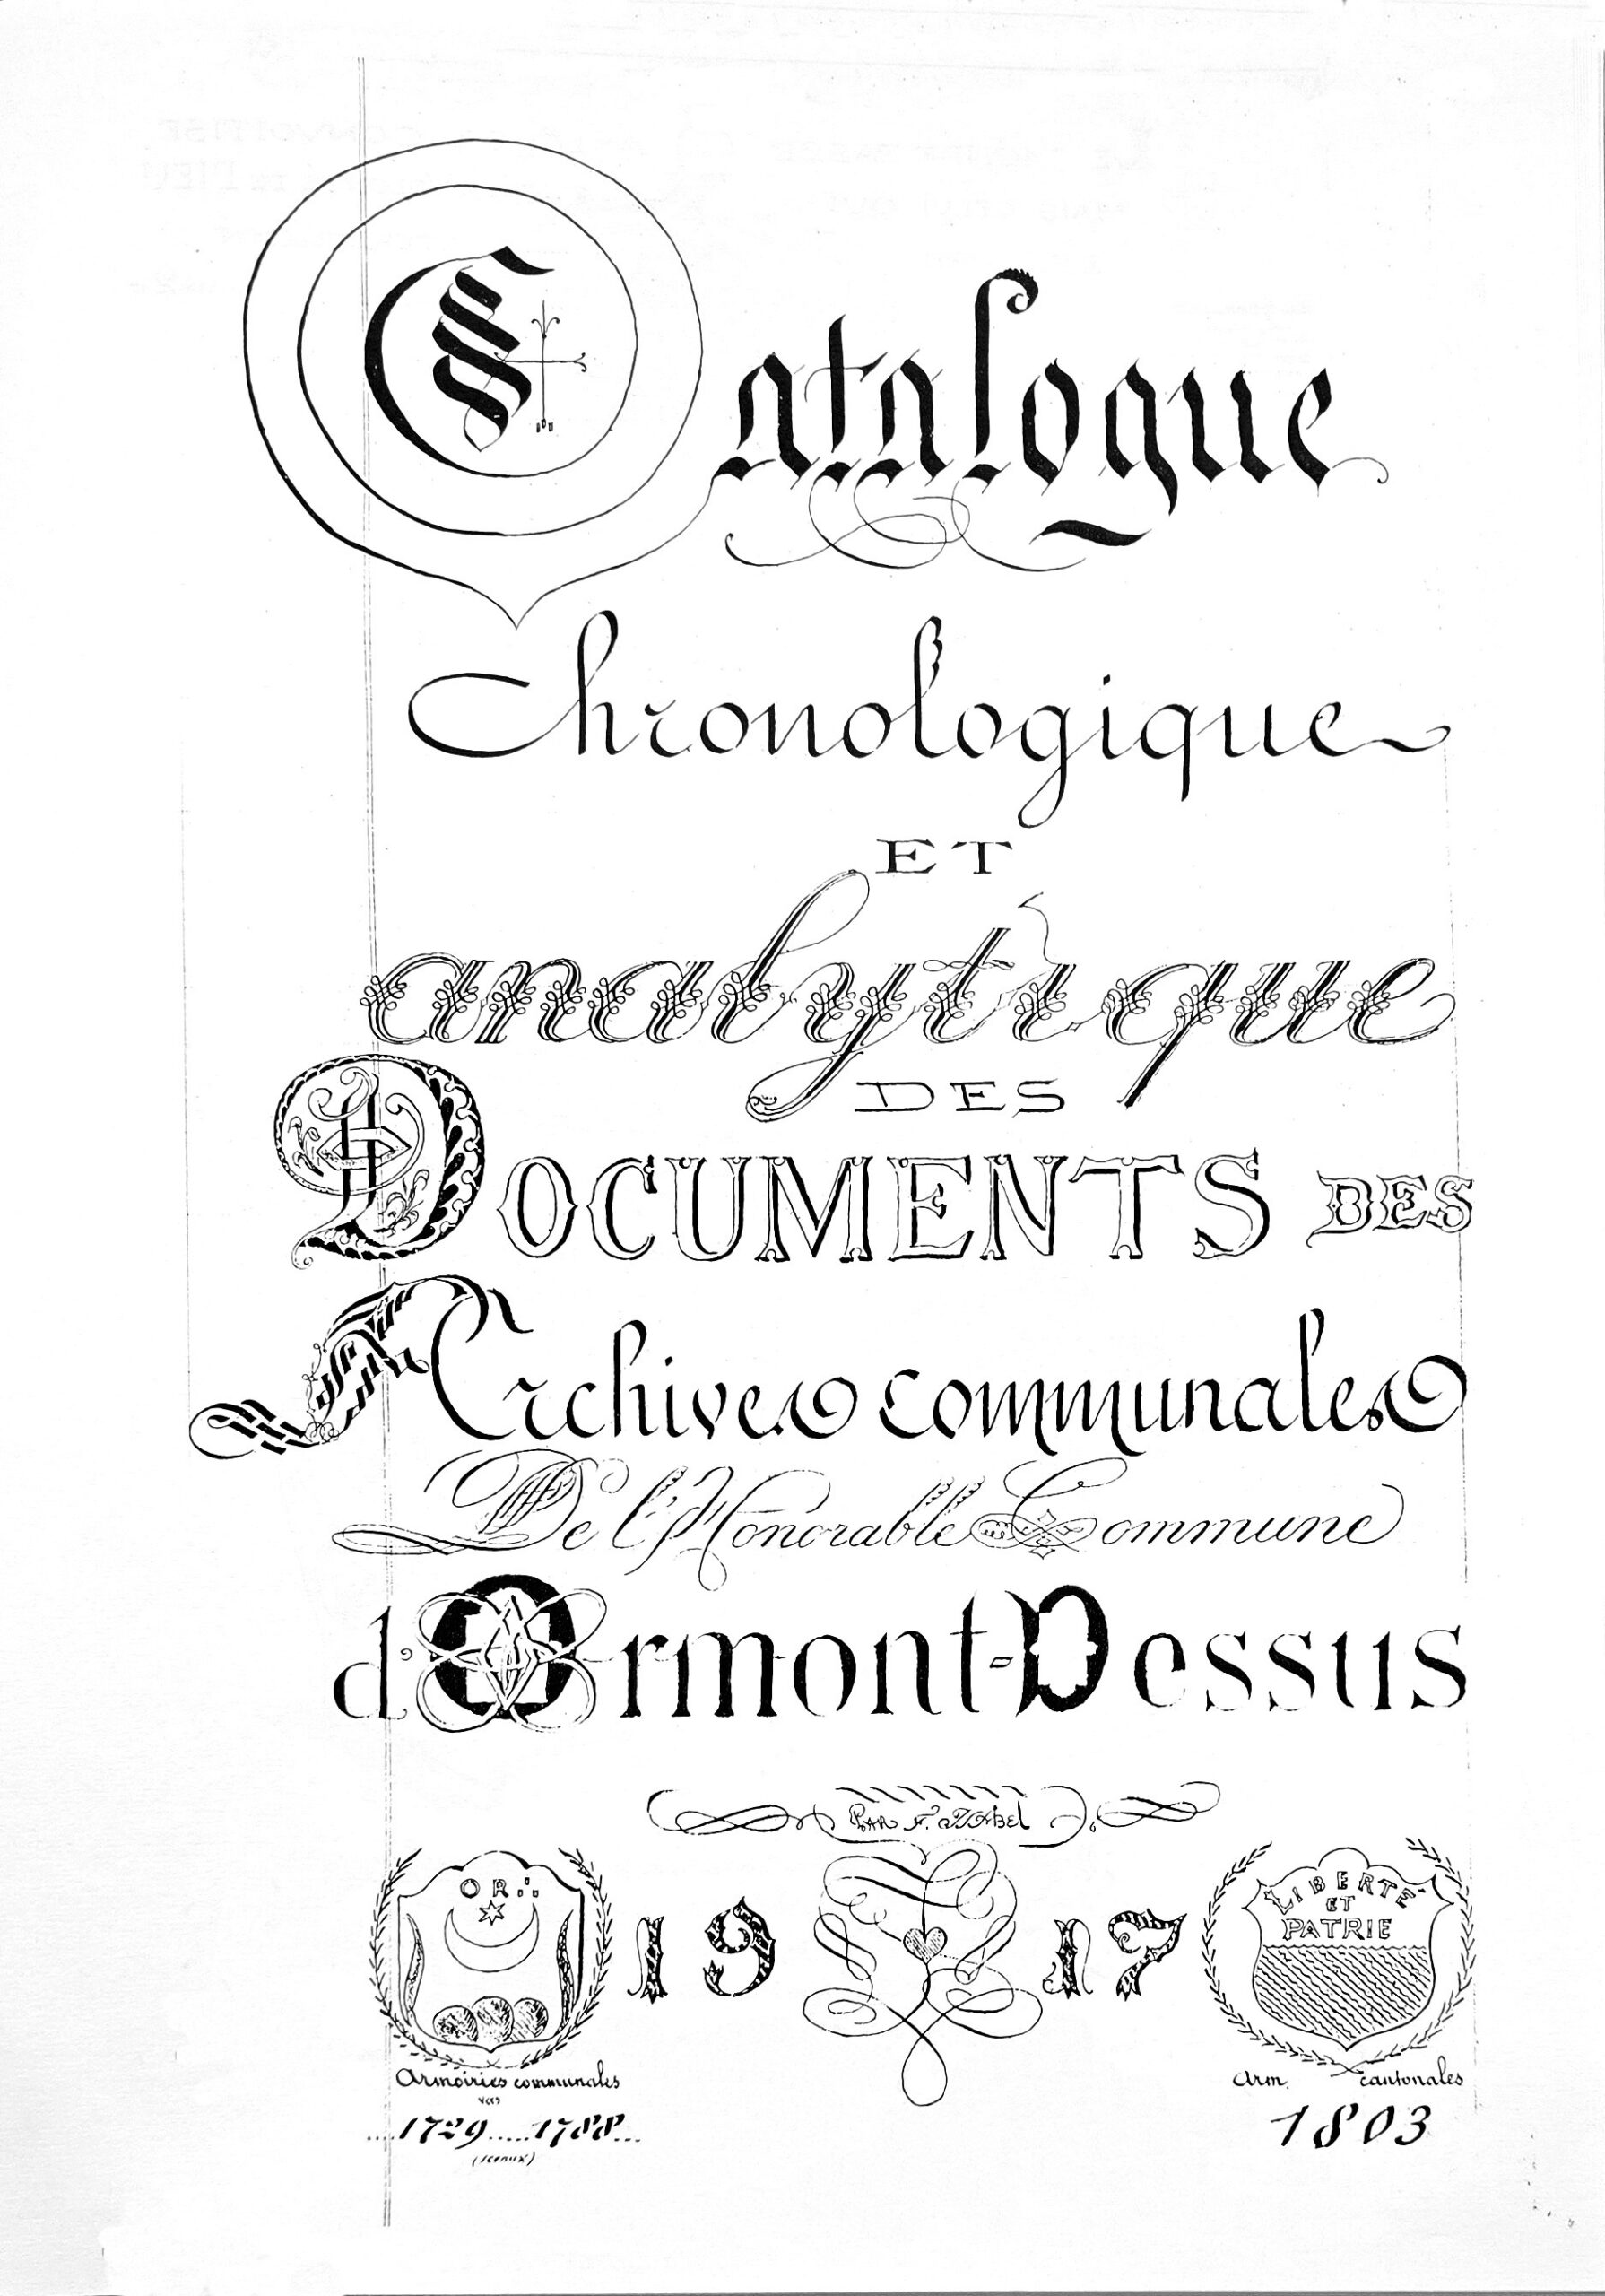 Catalogue
Chronologique
ET
analytique
DES
DOCUMENTS DES
Archives communales
De l'Honorable Commune
d'Ormont-Dessus
PAR F.
OR
19 17
LIBERTÉ
ET
PATRIE
Armoiries communales
vers
....1729.....1788...
(sceaux)
Arm. cantonales
1803